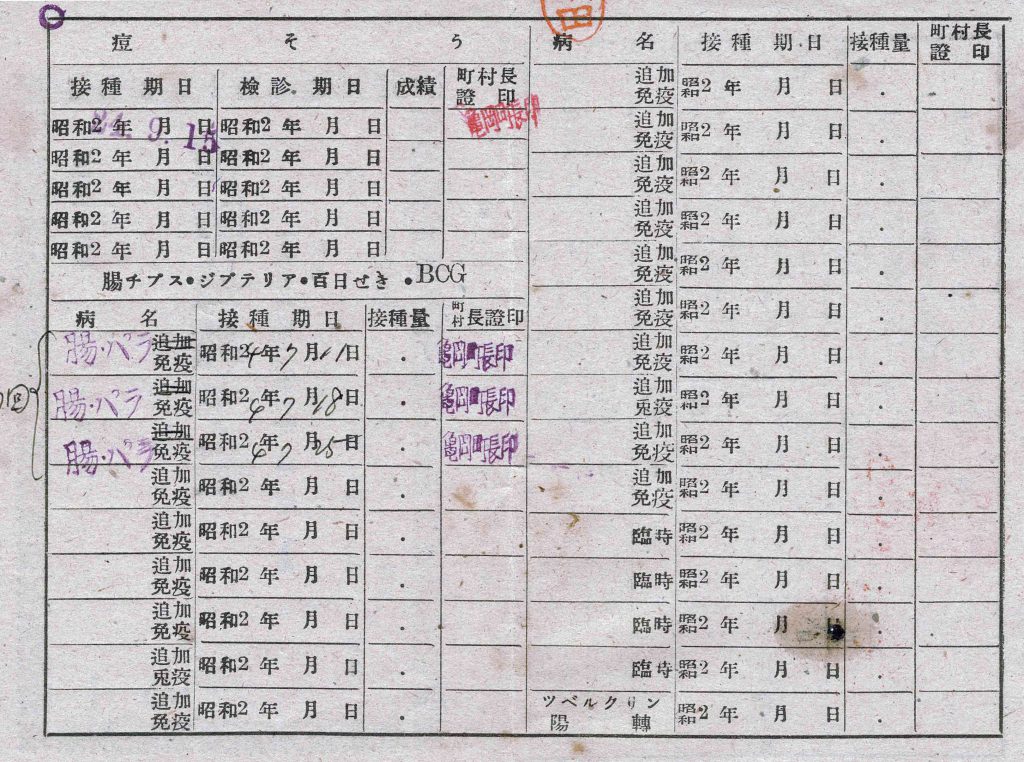 痘そう
接種期日 檢診期日 成績 町村長證印
昭和24年9月15日 昭和2 年 月 日 亀岡町長印
昭和2 年 月 日 昭和2 年 月 日
昭和2 年 月 日 昭和2 年 月 日
昭和2 年 月 日 昭和2 年 月 日
昭和2 年 月 日 昭和2 年 月 日
腸チプス・ジフテリア・百日せき・BCG
病名 接種期日 接種量 町村長證印
腸・パラ 追加免疫 昭和24年7月11日 . 亀岡町長印
腸・パラ 追加免疫 昭和24年7月18日 . 亀岡町長印
腸・パラ 追加免疫 昭和24年7月25日 . 亀岡町長印
追加免疫 昭和2 年 月 日 .
追加免疫 昭和2 年 月 日 .
追加免疫 昭和2 年 月 日 .
追加免疫 昭和2 年 月 日 .
追加免疫 昭和2 年 月 日 .
追加免疫 昭和2 年 月 日 .
病名 接種期日 接種量 町村長證印
追加免疫 昭和2 年 月 日 .
追加免疫 昭和2 年 月 日 .
追加免疫 昭和2 年 月 日 .
追加免疫 昭和2 年 月 日 .
追加免疫 昭和2 年 月 日 .
追加免疫 昭和2 年 月 日 .
追加免疫 昭和2 年 月 日 .
追加免疫 昭和2 年 月 日 .
追加免疫 昭和2 年 月 日 .
追加免疫 昭和2 年 月 日 .
臨時 昭和2 年 月 日 .
臨時 昭和2 年 月 日 .
臨時 昭和2 年 月 日 .
臨時 昭和2 年 月 日 .
ツベルクリン陽轉 昭和2 年 月 日 .